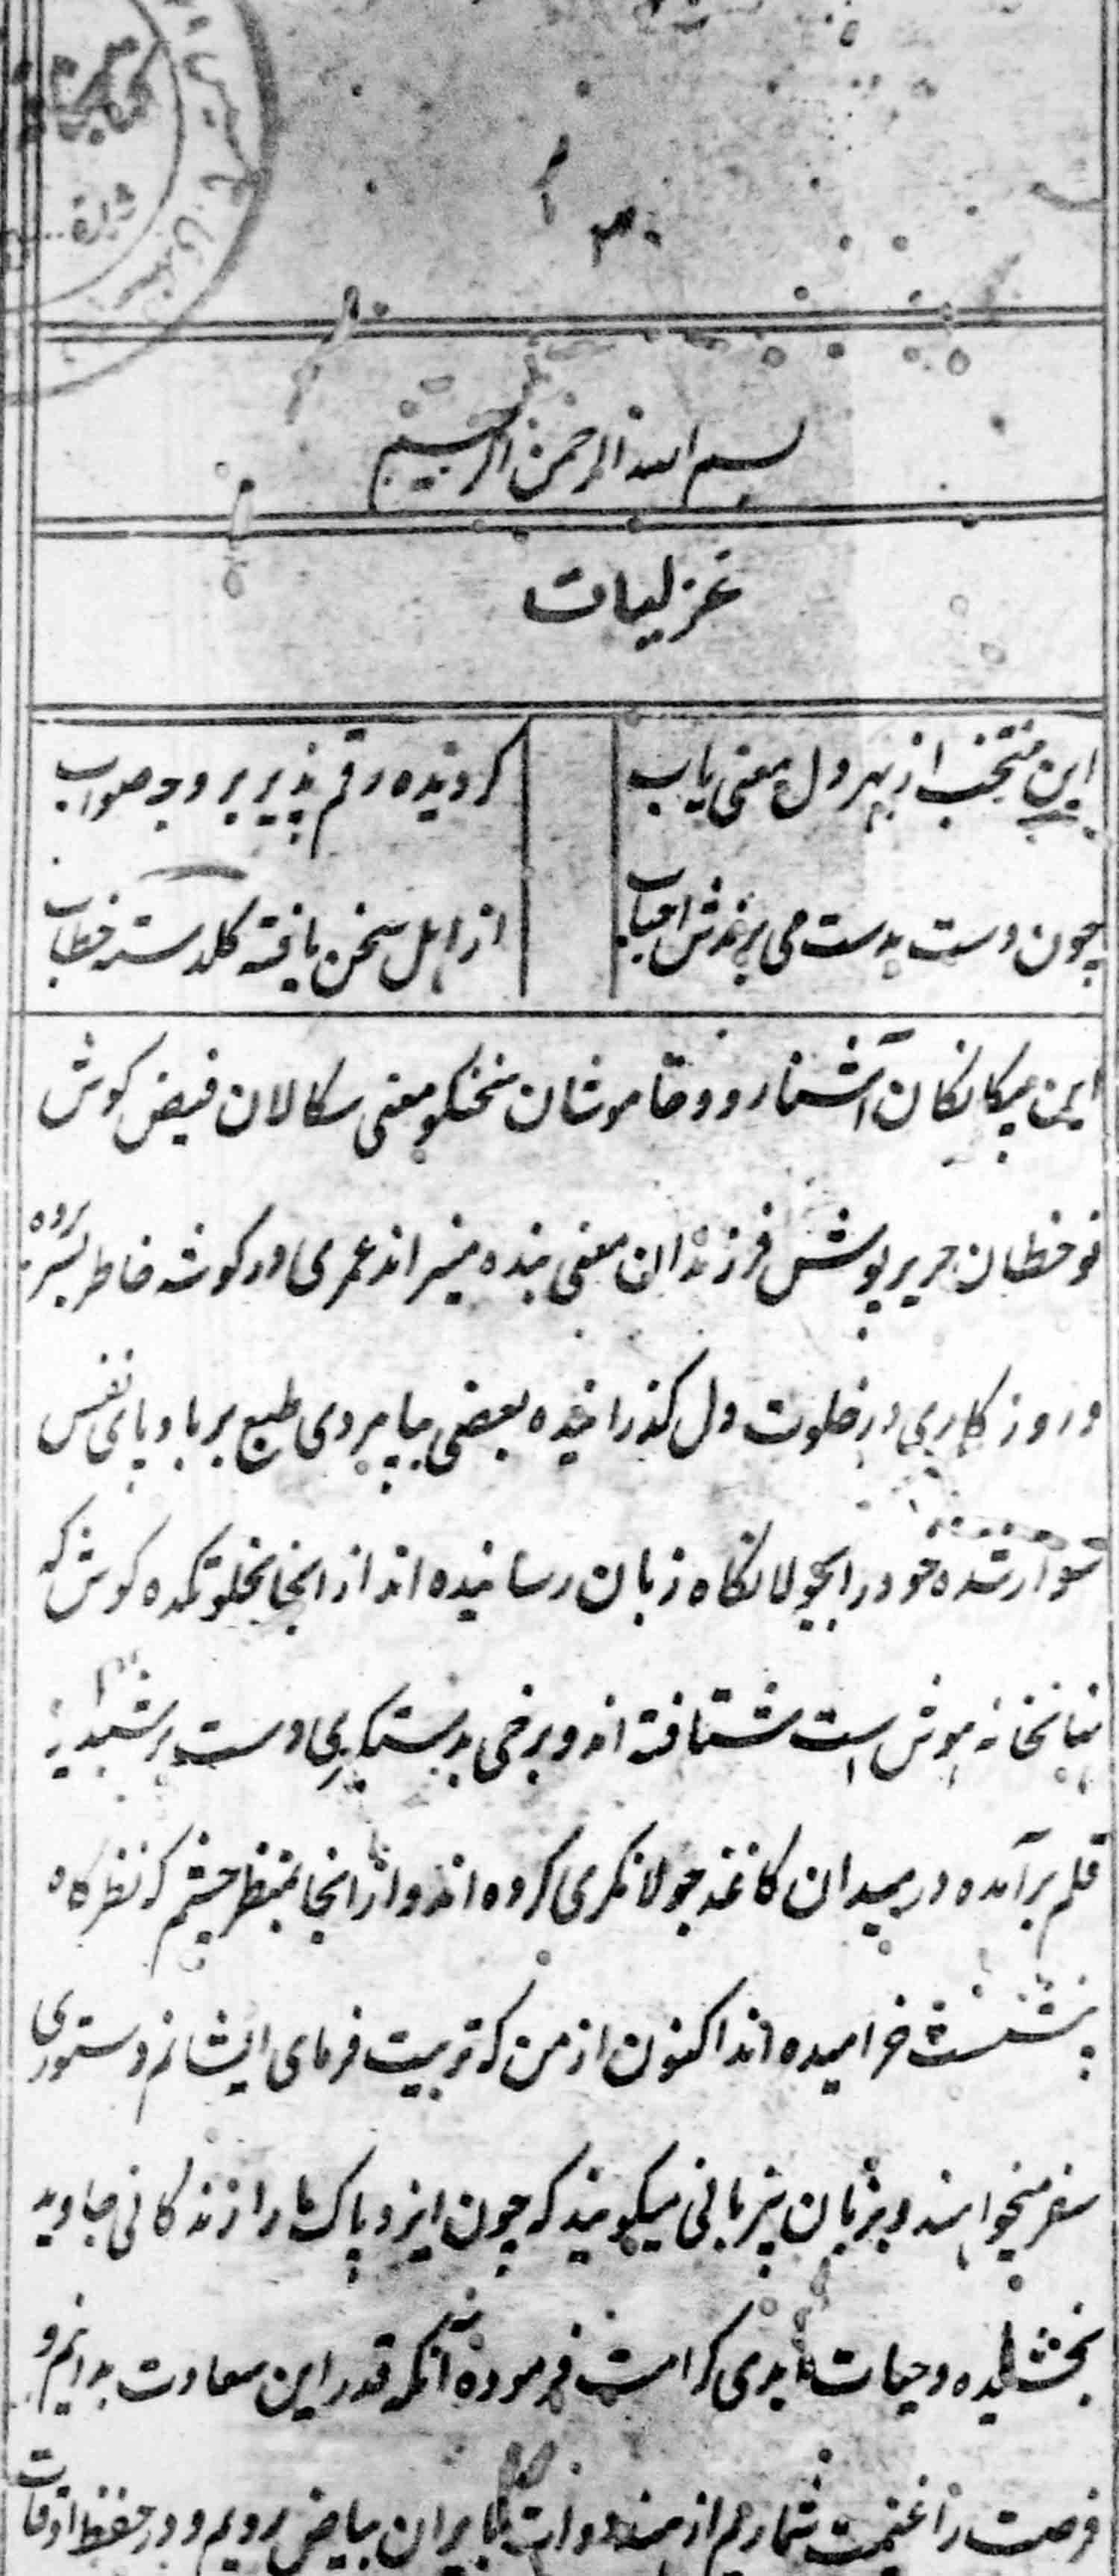 بسم الله الرحمن الرحیم
غزلیات
این منتخب از بهر دل معنی یاب کردیده رقم پذیر بر وجه صواب
چون دست بدست می برندش احباب از اهل سخن یافته کلدسته خطاب
این بیکانکان آشنارو و خاموشان سخنکو معنی سکالان فیض کوش
نو خطان حریر پوش فرزندان معنی بنده منیر اند عمری در کوشه خاطر بسر برده
و روزکاری در خلوت دل کذرانیده بعضی بپامردی طبع بر باد پای نفس
سوار شده خود را بجولانکاه زبان رسانیده اند از انجا بخلوتکده کوش که
نهانخانه هوش است شتافته اند و برخی بدستکیری دست بر شبدیز
قلم برآمده در میدان کاغذ جولانکری کرده اند و از انجا بمنظر چشم که نظرکاه
بینش است خرامیده اند اکنون از من که تربیت فرمای ایشانم دستوری
سفر میخواهند و بزبان بیزبانی میکویند که چون ایزد پاک ما را زندکانی جاوید
بخشیده و حیات ابدی کرامت فرموده آنکه قدر این سعادت بدانیم و
فرصت را غنیمت شماریم از هند دوات بایران بیاض رویم و در حفظ اوقات